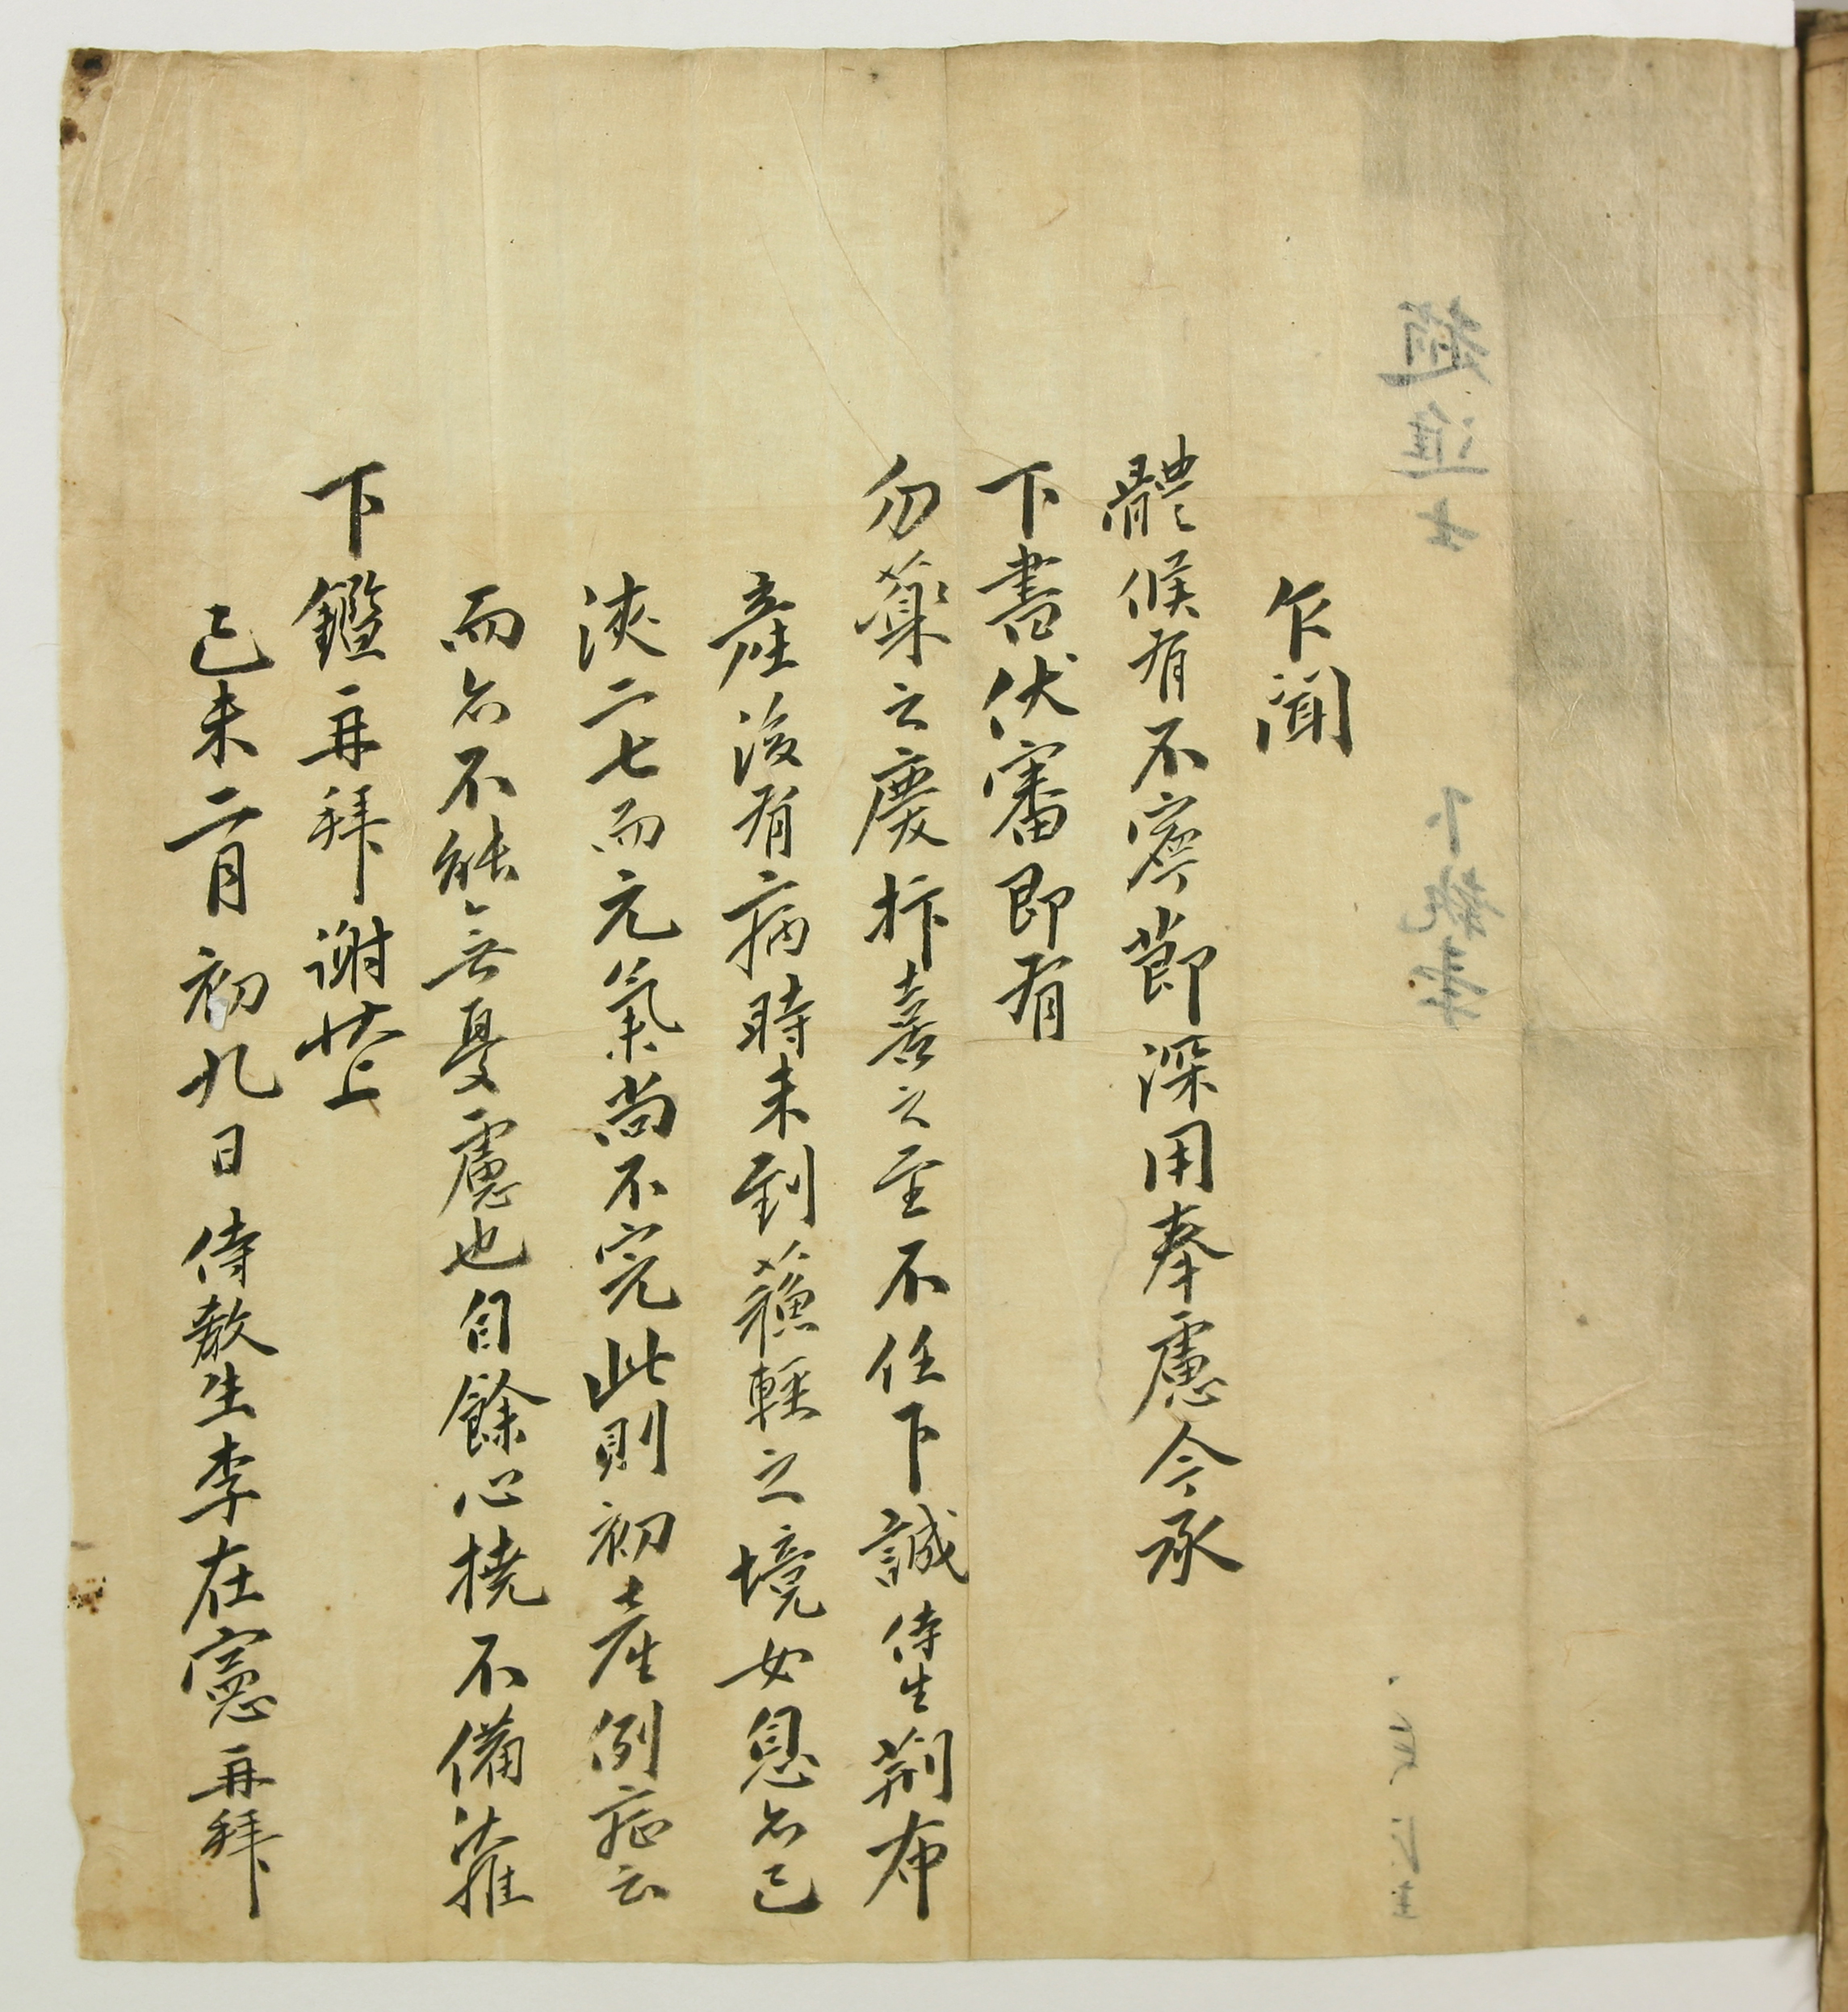 乍聞
體候有不寧節深用奉慮今承
下書伏審即有
勿藥之慶抃喜之至不任下誠侍生荊布
產後有病時未到蘇輕之境女息亦已
浹二七而元氣尚不完此則初產例症云
而亦不能無憂慮也自餘心撓不備
下鑑再拜謝狀上
己未二月初九日侍教生李在憲再拜
趙進士
下執事